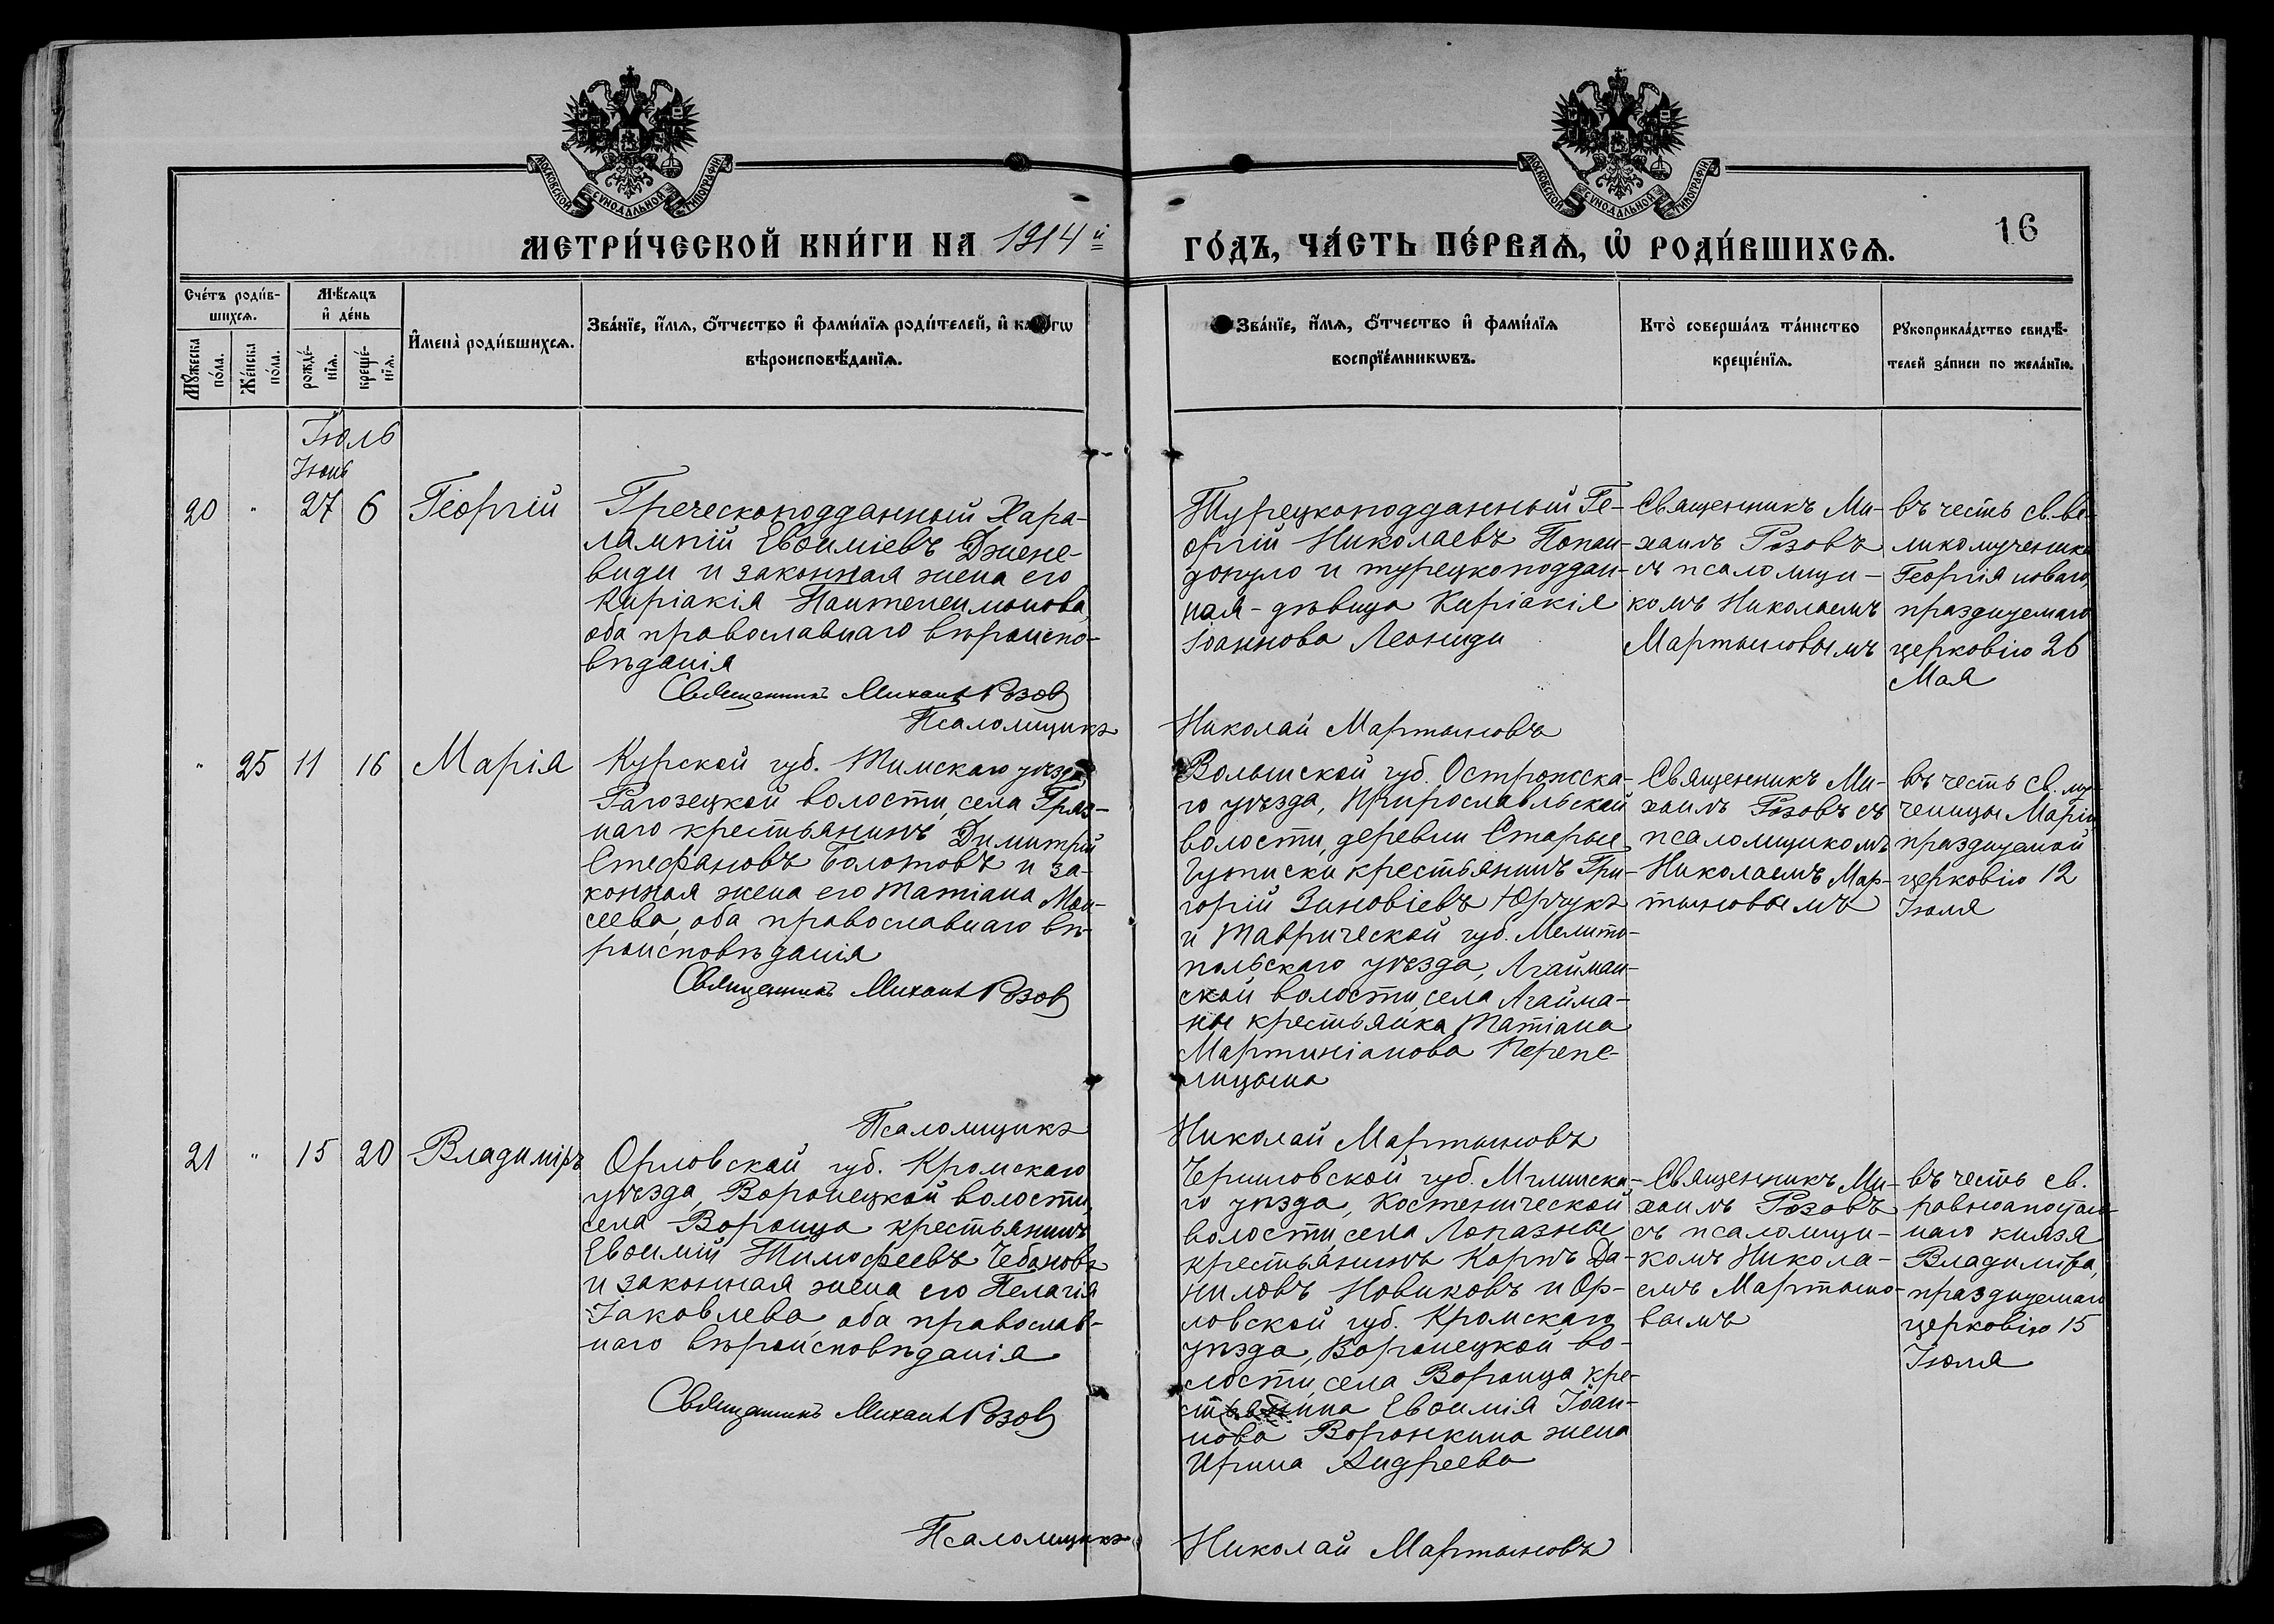 МОСКОВСКОЙ СУНОДАЛЬНОЙ ТИПОГРАФІИ
МОСКОВСКОЙ СУНОДАЛЬНОЙ ТИПОГРАФІИ
16
МЕТРИ́ЧЕСКОЙ КНИ́ГИ НА 1914й
ГО́ДЪ, ЧА́СТЬ ПЕ́РВАѦ, Ѽ РОДИ́ВШИХСѦ.
Сче́тъ роди́в-
шихсѧ.
Мꙋ́жеска
по́ла.
Же́нска
по́ла.
Мѣ́сѧцъ
и҆ де́нь
рожде́-
нїѧ.
креще́-
нїѧ.
И҆мена̀ роди́вшихсѧ.
Зва́нїе, и҆́мѧ, ѻ҆́тчество и҆ фами́лїѧ роди́телей, и҆ како́гѡ
вѣроисповѣ́данїѧ.
Зва́нїе, и҆́мѧ, ѻ҆́тчество и҆ фами́лїѧ
воспрїе́мникѡвъ.
Кто̀ соверша́лъ та́инство
креще́нїѧ.
Рꙋкоприкла́дство свидѣ́-
телей за́писи по жела́нїю.
Іюль
Іюнь
20 " 27 6 Георгій
Греческоподданный Хара-
лампій Евѳиміевъ Джене-
види и законная жена его
Киріакія Пантелеимонова,
оба православнаго вѣроиспо-
вѣданія
Священникъ Михаилъ Розовъ
Псаломщикъ
Турецкоподданный Ге-
оргій Николаевъ Попан-
допуло и турецкоподдан-
ная - дѣвица Киріакія
Іоаннова Леониди
Николай Мартыновъ
Священникъ Ми-
хаилъ Розовъ
съ псаломщи-
комъ Николаемъ
Мартыновымъ
въ честь св. ве-
ликомученика
Георгія новаго,
празднуемаго
церковію 26
Мая
" 25 11 16 Марія
Курской губ. Тимскаго уѣзда
Рагозецкой волости, села Гряз-
наго крестьянинъ Димитрій
Стефановъ Болотовъ и за-
конная жена его Татіана Мои-
сеева, оба православнаго вѣ-
роисповѣданія
Священникъ Михаилъ Розовъ
Псаломщикъ
Волынской губ. Острожска-
го уѣзда,
волости, деревни Старые
крестьянинъ Гри-
горій Зиновіевъ Юрчукъ
и Таврической губ. Мелито-
польскаго уѣзда, Агайман-
ской волости, села Агайма-
ны крестьянка Татіана
Мартиніанова Перепе-
лицына
Николай Мартыновъ
Священникъ Ми-
хаилъ Розовъ съ
псаломщикомъ
Николаемъ Мар-
тыновымъ
въ честь св. му-
ченицы Маріи,
празднуемой
церковію 12
Іюля
21 " 15 20 Владиміръ
Орловской губ. Кромскаго
уѣзда, Воронецкой волости,
села Воронца крестьянинъ
Евѳимій Тимофеевъ Чебановъ
и законная жена его Пелагія
Іаковлева, оба православ-
наго вѣроисповѣданія
Священникъ Михаилъ Розовъ
Псаломщикъ
Черниговской губ. Мглинска-
го уѣзда, Костенической
волости, села Лопазны
крестьянинъ Карпъ Да-
ниловъ Новиковъ и Ор-
ловской губ. Кромскаго
уѣзда, Воронецкой во-
лости, села Воронца кре-
стьянина Евѳимія Іоан-
нова Воронкина жена
Ирина Андреева
Николай Мартыновъ
Священникъ Ми-
хаилъ Розовъ
съ псаломщи-
комъ Никола-
емъ Мартыно-
вымъ
въ честь св.
равноапостоль-
наго князя
Владиміра,
празднуемаго
церковію 15
Іюля